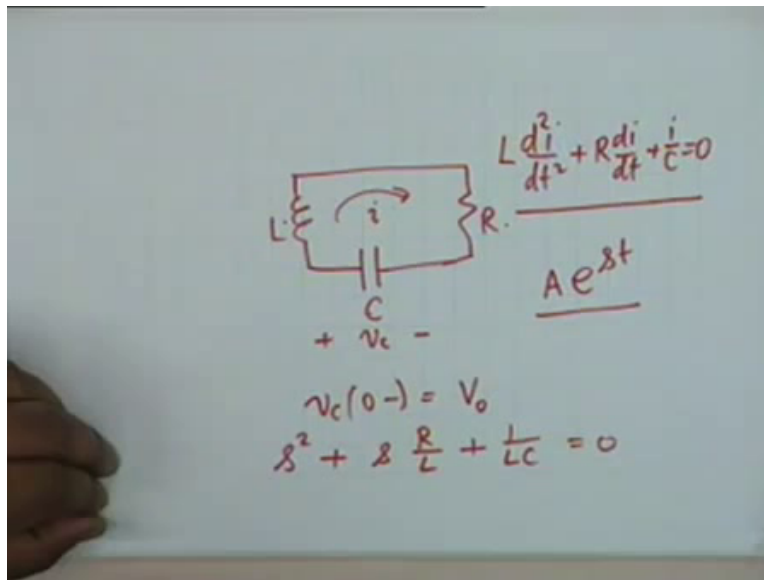 L d²i/dt² + R di/dt + i/C = 0
L
i
R.
A e^st
C
+ v_c -
v_c(0-) = V_0
s² + s R/L + 1/LC = 0